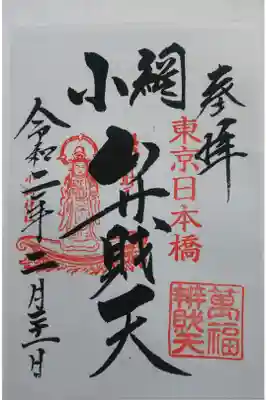 奉拝
東京日本橋
萬福
辨財天
小網
弁財天
令和二年二月二十一日